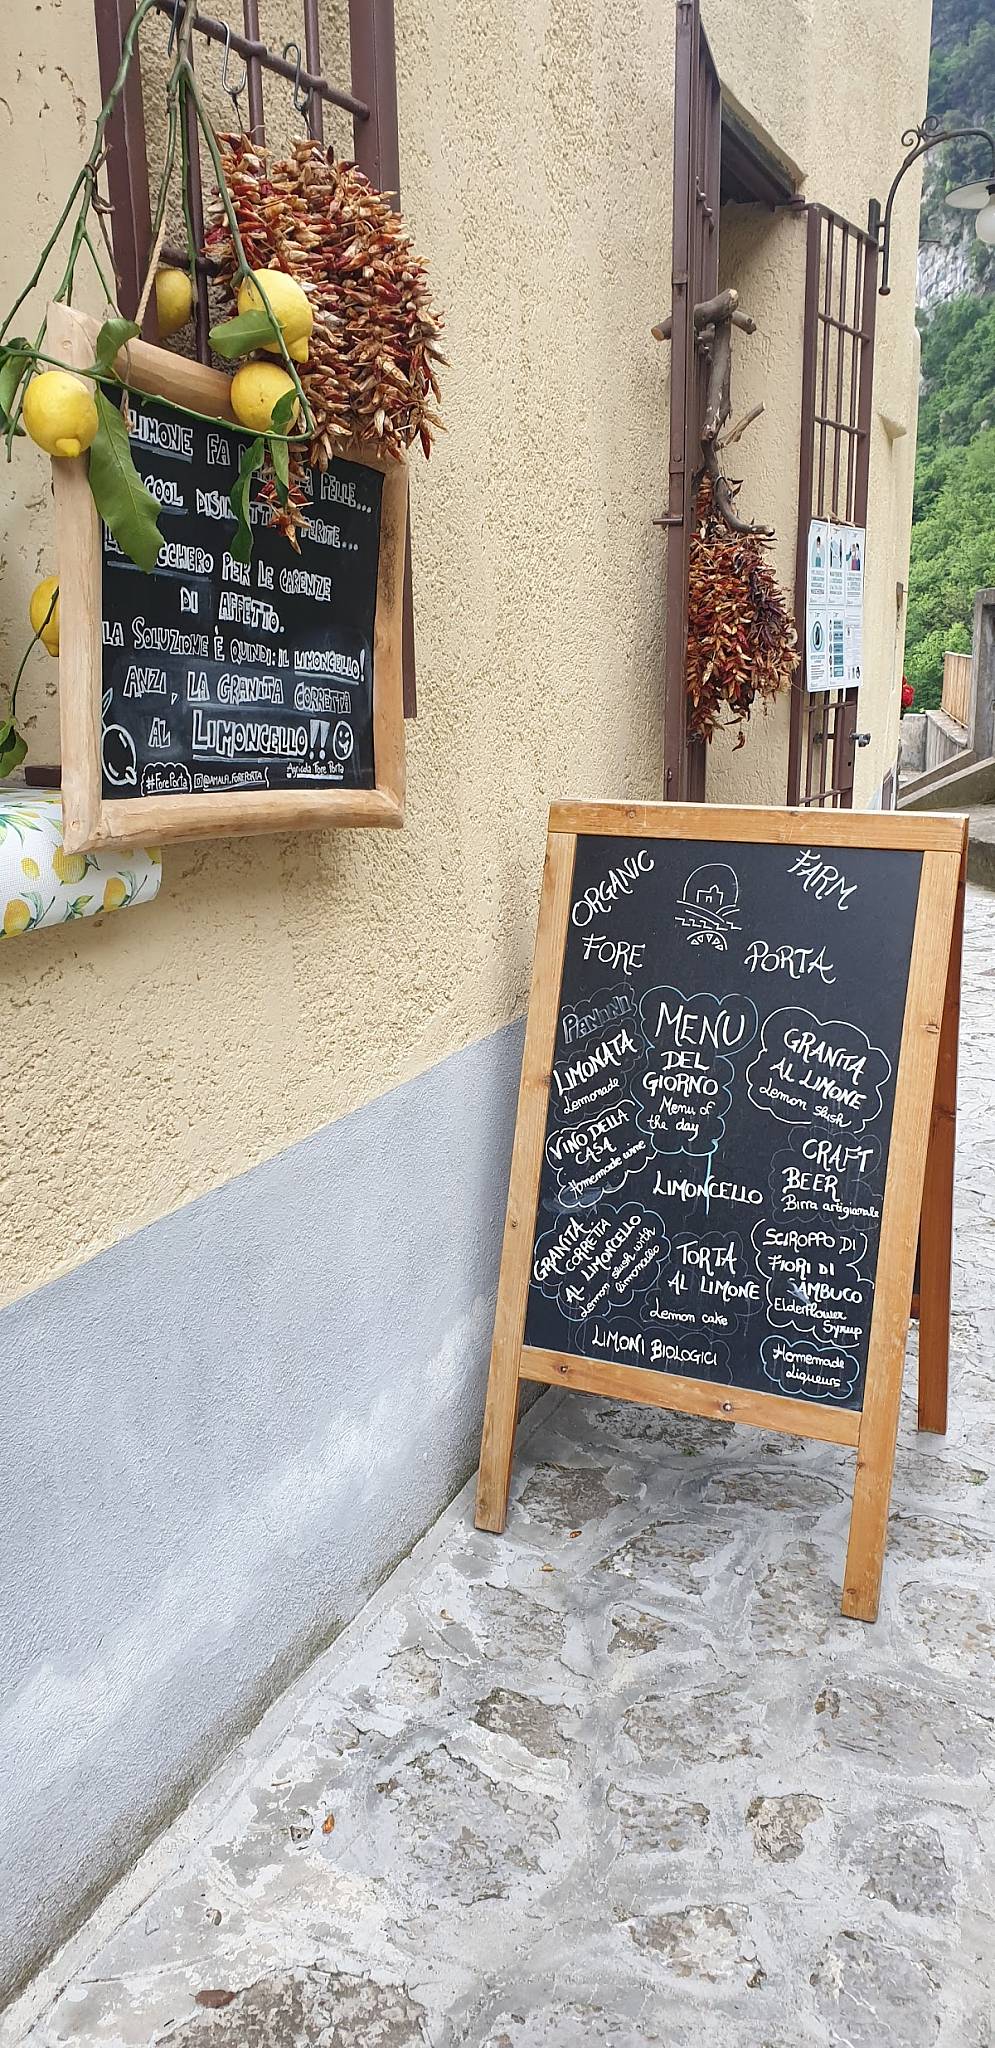 LIMONE FA PELLE...
DISIN
PER LE CARENZE
DI AFFETTO.
LA SOLUZIONE È QUINDI: IL LIMONCELLO!
ANZI, LA GRANITA CORRETTA
AL LIMONCELLO!!
#ForePorta @AMALA_FOREPORTA Agricola Fore Porta
ORGANIC FARM
FORE PORTA
PANINI
LIMONATA
Lemonade
VINO DELLA
CASA
Homemade wine
GRANITA
CORRETTA
AL LIMONCELLO
Lemon slush with
limoncello
MENU
DEL
GIORNO
Menu of
the day
LIMONCELLO
TORTA
AL LIMONE
Lemon cake
LIMONI BIOLOGICI
GRANITA
AL LIMONE
Lemon slush
CRAFT
BEER
Birra artigianale
SCIROPPO DI
FIORI DI
SAMBUCO
Elderflower
Syrup
Homemade
Liqueurs